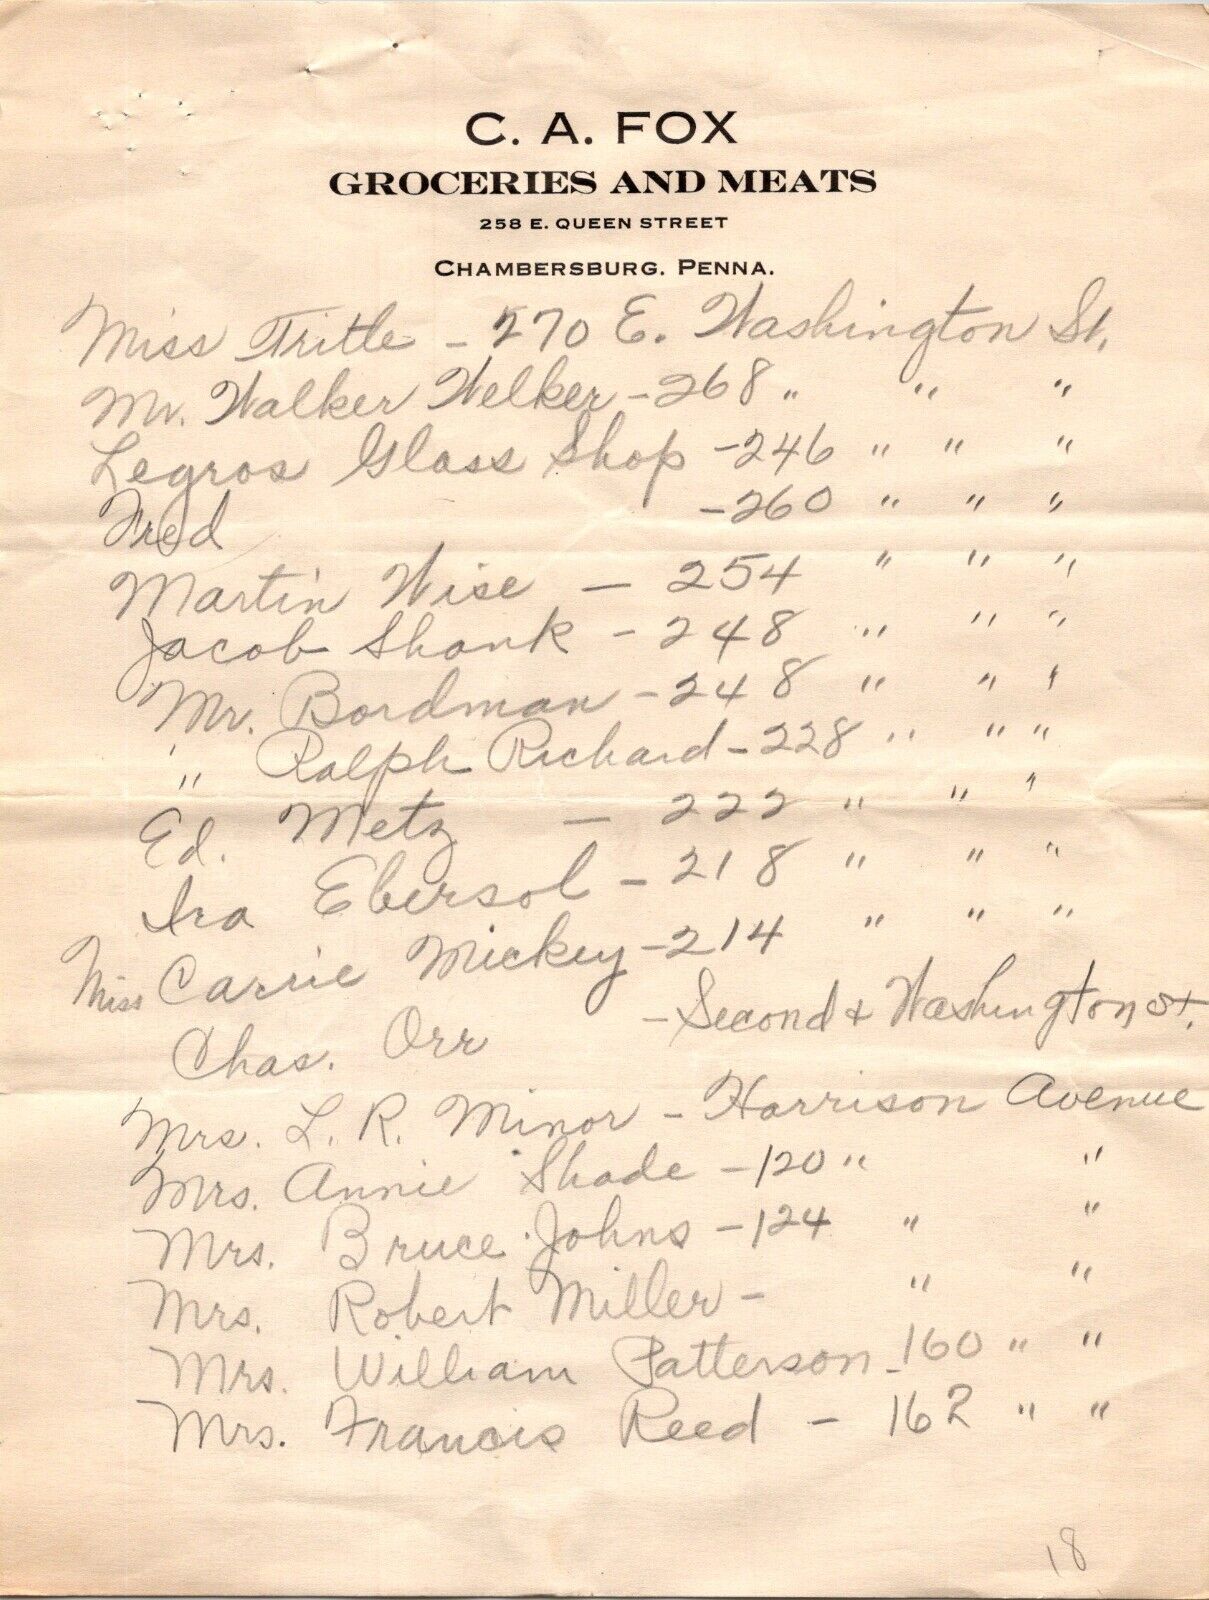 C. A. FOX
GROCERIES AND MEATS
258 E. QUEEN STREET
CHAMBERSBURG, PENNA.
Miss Tritle - 270 E. Washington St.
Mr. Walker Welker - 268 " " "
Legros Glass Shop - 246 " " "
Fred - 260 " " "
Martin Wise - 254 " " "
Jacob Shank - 248 " " "
Mr. Bordman - 248 " " "
" Ralph Richard - 228 " " "
Ed. Metz - 222 " " "
Ira Ebersol - 218 " " "
Miss Carrie Mickey - 214 " " "
Chas. Orr - Second & Washington St.
Mrs. L. R. Minor - Harrison Avenue
Mrs. Annie Shade - 120 " "
Mrs. Bruce Johns - 124 " "
Mrs. Robert Miller - " "
Mrs. William Patterson - 160 " "
Mrs. Francis Reed - 162 " "
18